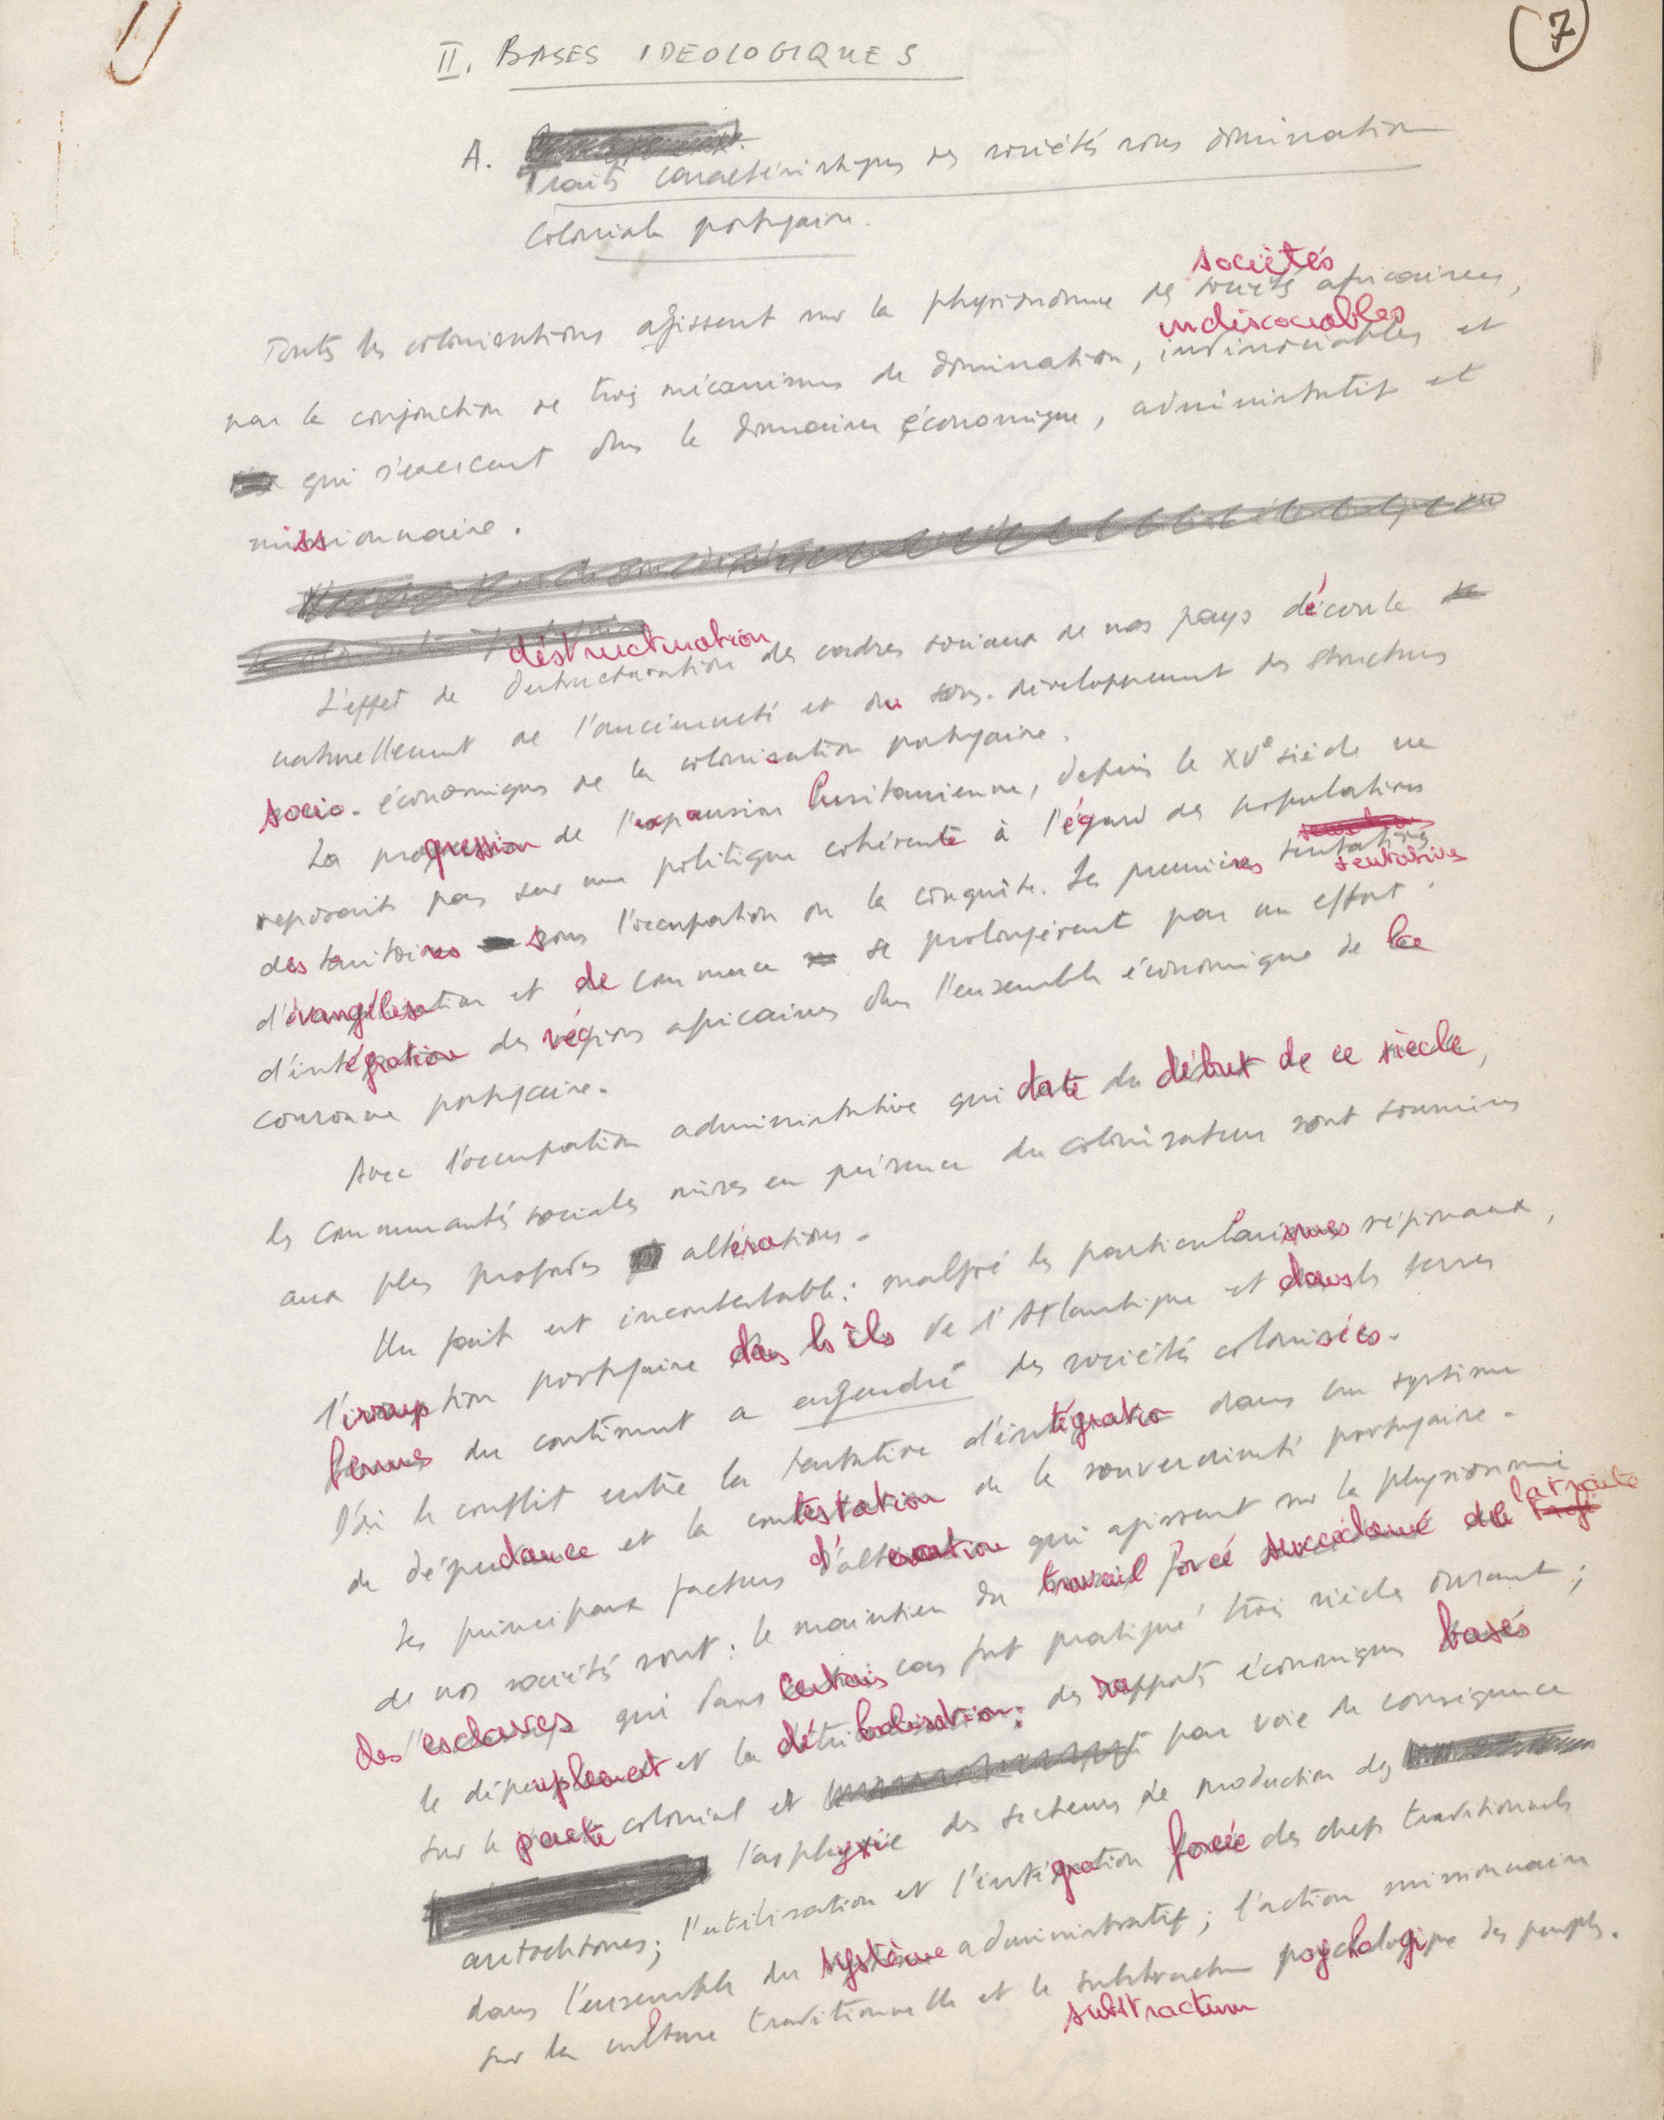 7
II. BASES IDEOLOGIQUES
A.
Traits caractéristiques des sociétés sous domination
coloniale portugaise.
sociétés
Toutes les colonisations agissent sur la physionomie des sociétés africaines,
indissociables
par la conjonction de trois mécanismes de domination, indissociables et
qui s'exercent dans le domaine économique, administratif et
missionnaire.
déstructuration
L'effet de destructuration des cadres sociaux de nos pays découle
naturellement de l'ancienneté et du sous-développement des structures
socio-économiques de la colonisation portugaise.
La progression de l'expansion lusitanienne, depuis le XVe siècle ne
reposait pas sur une politique cohérente à l'égard des populations
des territoires sous l'occupation ou la conquête. Les premières tentatives
tentatives
d'évangélisation et de commerce se prolongèrent par un effort
d'intégration des régions africaines dans l'ensemble économique de la
couronne portugaise.
Avec l'occupation administrative qui date du début de ce siècle,
les communautés sociales mises en présence du colonisateur sont soumises
aux plus profondes altérations.
Un fait est incontestable : malgré les particularismes régionaux,
l'irruption portugaise dans les îles de l'Atlantique et dans les terres
fermes du continent a engendré des sociétés colonisées.
D'où le conflit entre la tentative d'intégration dans un système
de dépendance et la contestation de la souveraineté portugaise.
Les principaux facteurs d'altération qui agissent sur la physionomie
de nos sociétés sont : le maintien du travail forcé succédané de la traite
des esclaves qui dans certains cas fut pratiqué trois siècles durant ;
le dépeuplement et la détribalisation ; des rapports économiques basés
sur le pacte colonial et par voie de conséquence
l'asphyxie des secteurs de production des
autochtones ; l'utilisation et l'intégration forcée des chefs traditionnels
dans l'ensemble du système administratif ; l'action missionnaire
sur la culture traditionnelle et le substractum psychologique des peuples.
substractum